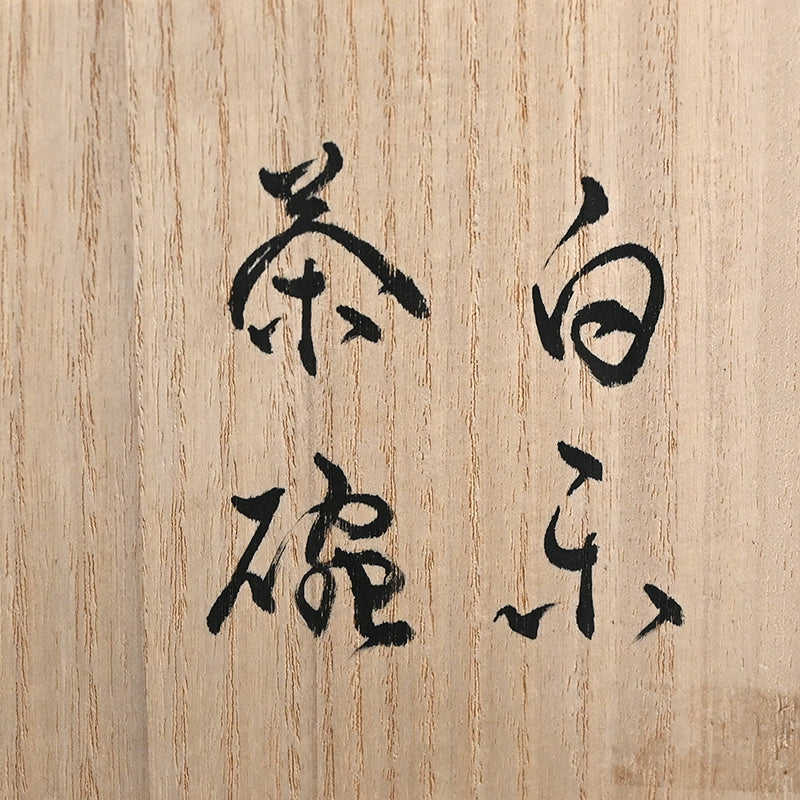 白楽
茶碗